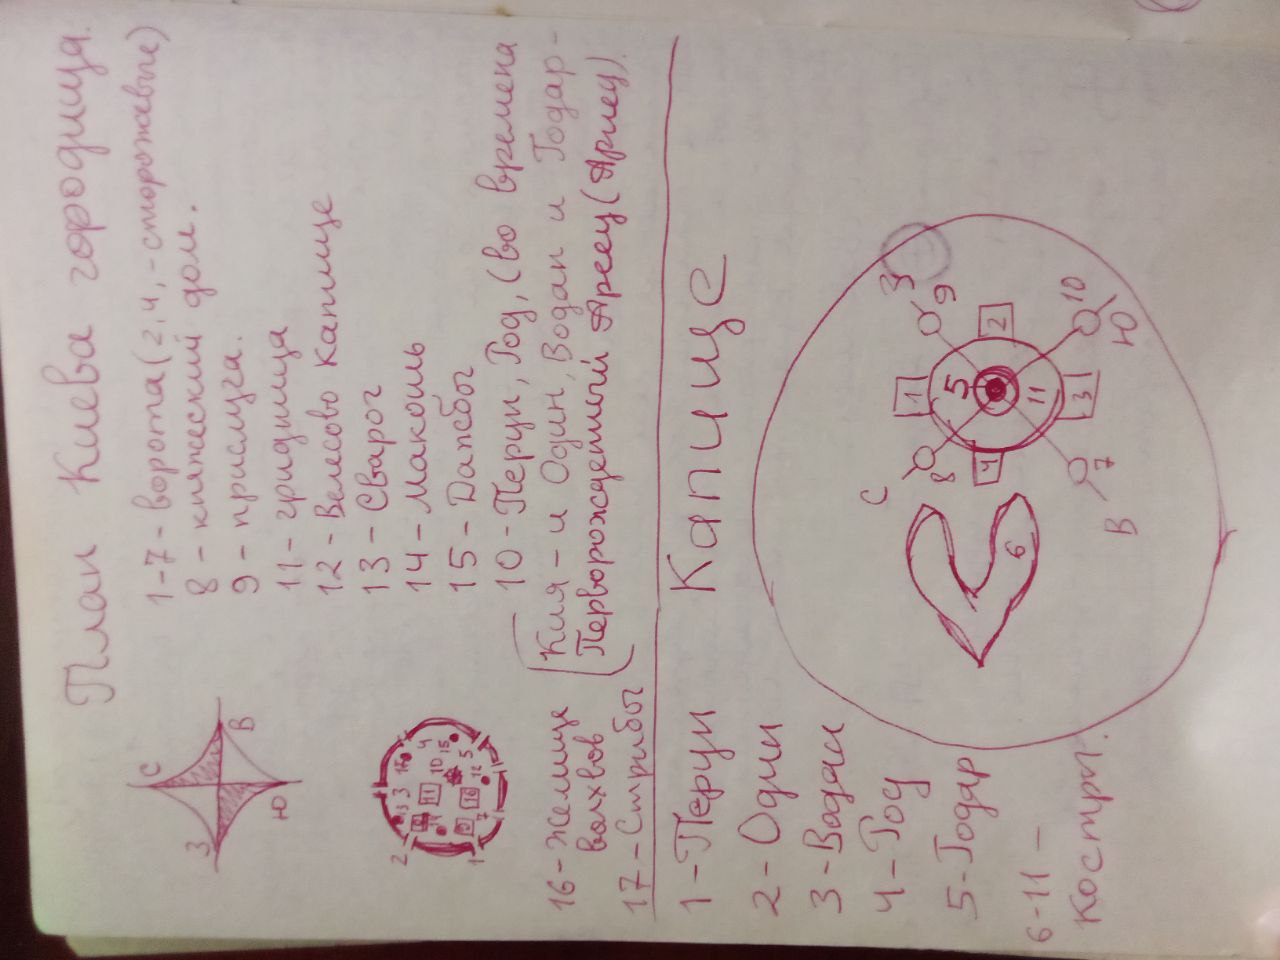 План Киева городища.
1-7 - ворота (2,4, - сторожевые)
8 - княжеский дом.
9 - прислуга.
11 - гридница
12 - Велесово капище
13 - Сварог
14 - Макошь
15 - Дапсбы
10 - Перун, Год, (во времена
Кия - и Один, Водан и Годар -
Перворожденный Арсец (Ариец).
16 - Жилище
волхвов
17 - Стрибы
С
З
В
Ю
Капище
1 - Перун
2 - Один
3 - Водан
4 - Год
5 - Годар
6-11 -
Костры.
С
З
В
Ю
1
2
3
4
5
6
7
8
9
10
11